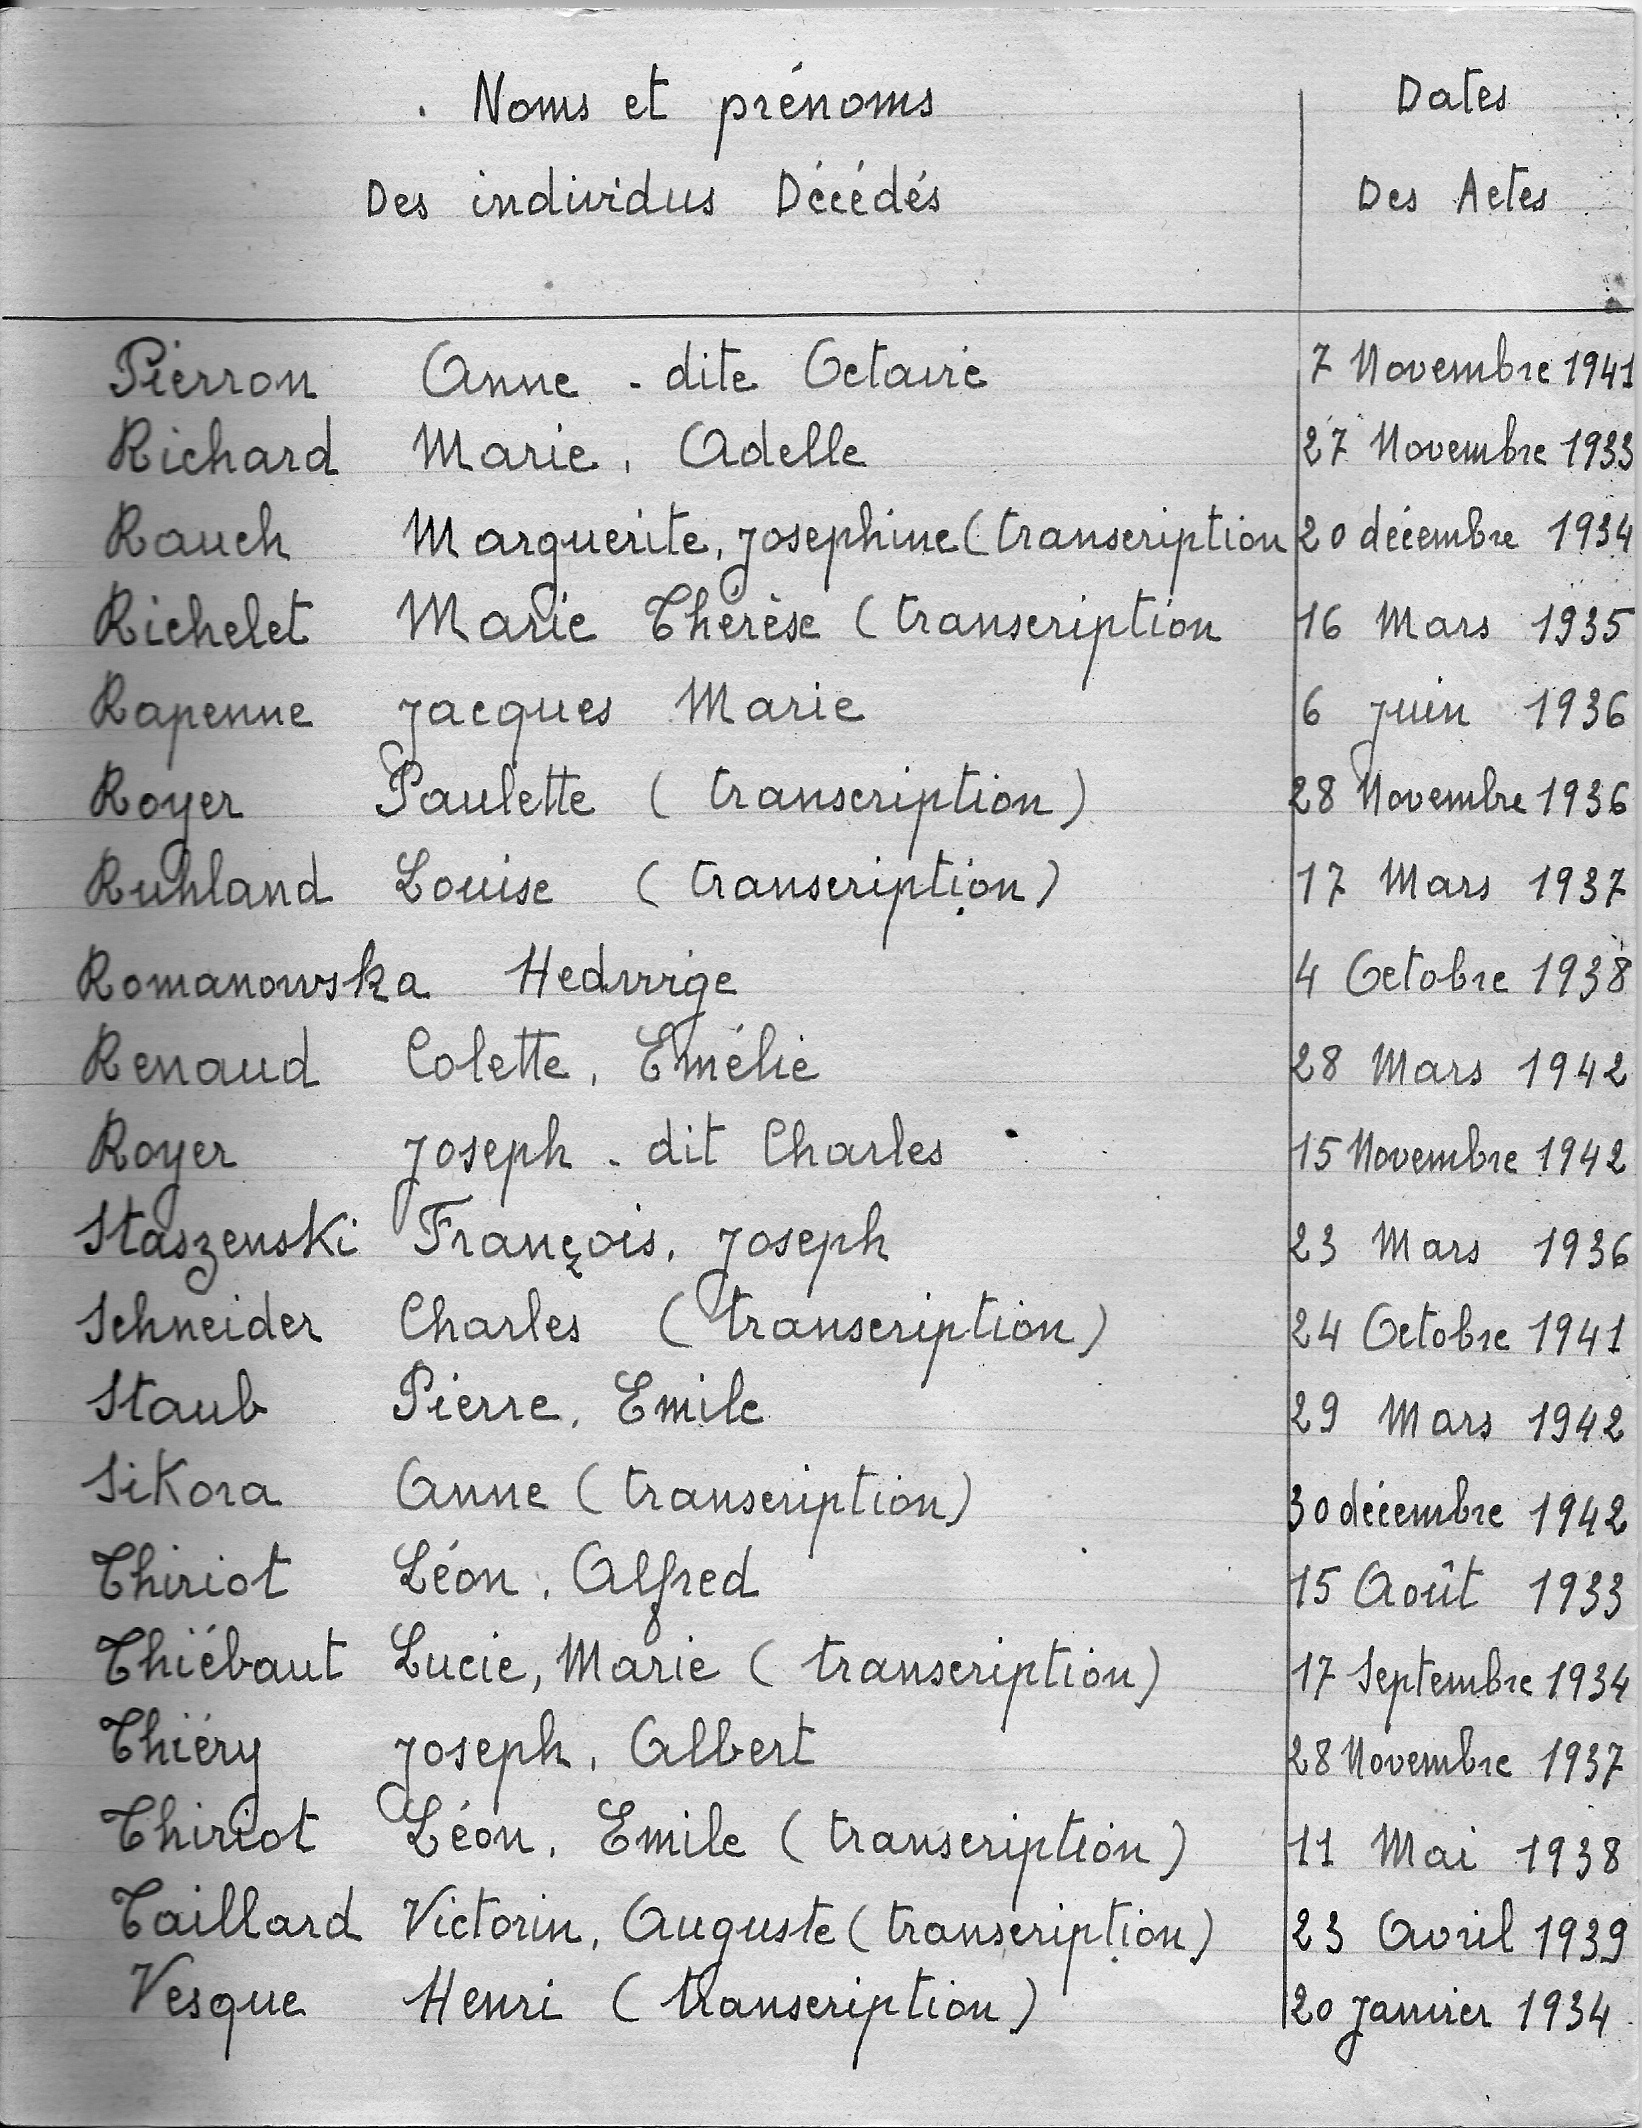 Noms et prénoms Dates
Des individus Décédés Des Actes
Pierron Anne - dite Octavie 7 Novembre 1941
Richard Marie, Adelle 27 Novembre 1933
Rauch Marguerite, Josephine (transcription 20 décembre 1934
Richelet Marie Thérèse (transcription 16 Mars 1935
Rapenne Jacques Marie 6 Juin 1936
Royer Paulette (transcription) 28 Novembre 1936
Ruhland Louise (transcription) 17 Mars 1937
Romanowska Hedwige 4 Octobre 1938
Renaud Colette, Emélie 28 Mars 1942
Royer Joseph - dit Charles 15 Novembre 1942
Staszenski François, Joseph 23 Mars 1936
Schneider Charles (transcription) 24 Octobre 1941
Staub Pierre, Emile 29 Mars 1942
Sikora Anne (transcription) 30 décembre 1942
Thiriot Léon, Alfred 15 Août 1933
Thiébaut Lucie, Marie (transcription) 17 Septembre 1934
Thiéry Joseph, Albert 28 Novembre 1937
Thiriot Léon, Emile (transcription) 11 Mai 1938
Taillard Victorin, Auguste (transcription) 23 Avril 1939
Vesque Henri (transcription) 20 Janvier 1934